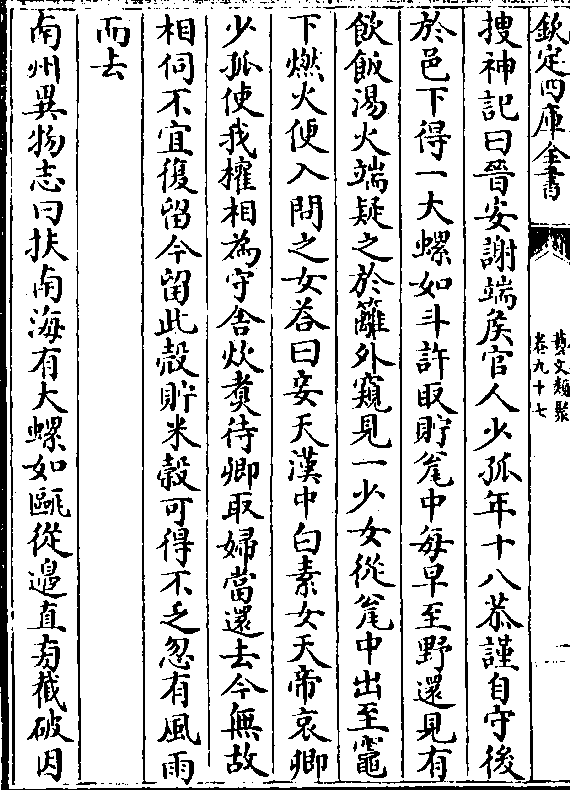 欽定四庫全書
藝文類聚
卷九十七
一
搜神記曰晉安謝端侯官人少孤年十八恭謹自守後
於邑下得一大螺如斗許取貯瓮中每早至野還見有
飲飯湯火端疑之於籬外窺見一少女從瓮中出至竈
下燃火便入問之女荅曰妾天漢中白素女天帝哀卿
少孤使我權相為守舍炊煑待卿取婦當還去今無故
相伺不宜復留今留此殻貯米穀可得不乏忽有風雨
而去
南州異物志曰扶南海有大螺如甌從邉直旁截破因